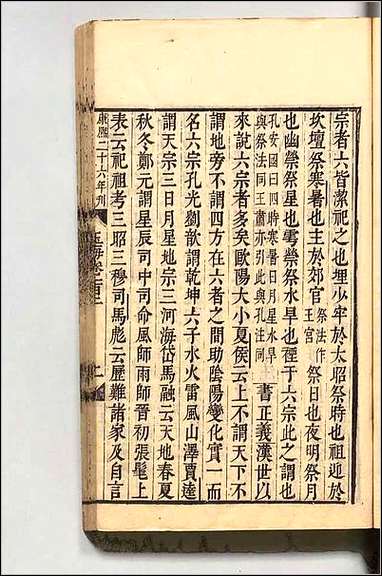 宗者六皆潔祀之也埋少牢於太昭祭時也祖迎於
坎壇祭寒暑也主於郊宮祭法作王宮祭日也夜明祭月
也幽禜祭星也雩禜祭水旱也禋于六宗此之謂也
孔安國曰四時寒暑日月星水旱
與祭法同王肅亦引此與孔注同
書正義漢世以
來說六宗者多矣歐陽大小夏侯云上不謂天下不
謂地旁不謂四方在六者之間助陰陽變化實一而
名六宗孔光劉歆謂乾坤六子水火雷風山澤賈逵
謂天宗三日月星地宗三河海岱馬融云天地春夏
秋冬鄭元謂星辰司中司命風師雨師晉初張髦上
表云祀祖考三昭三穆司馬彪云歷難諸家及自言
康熙二十六年刊